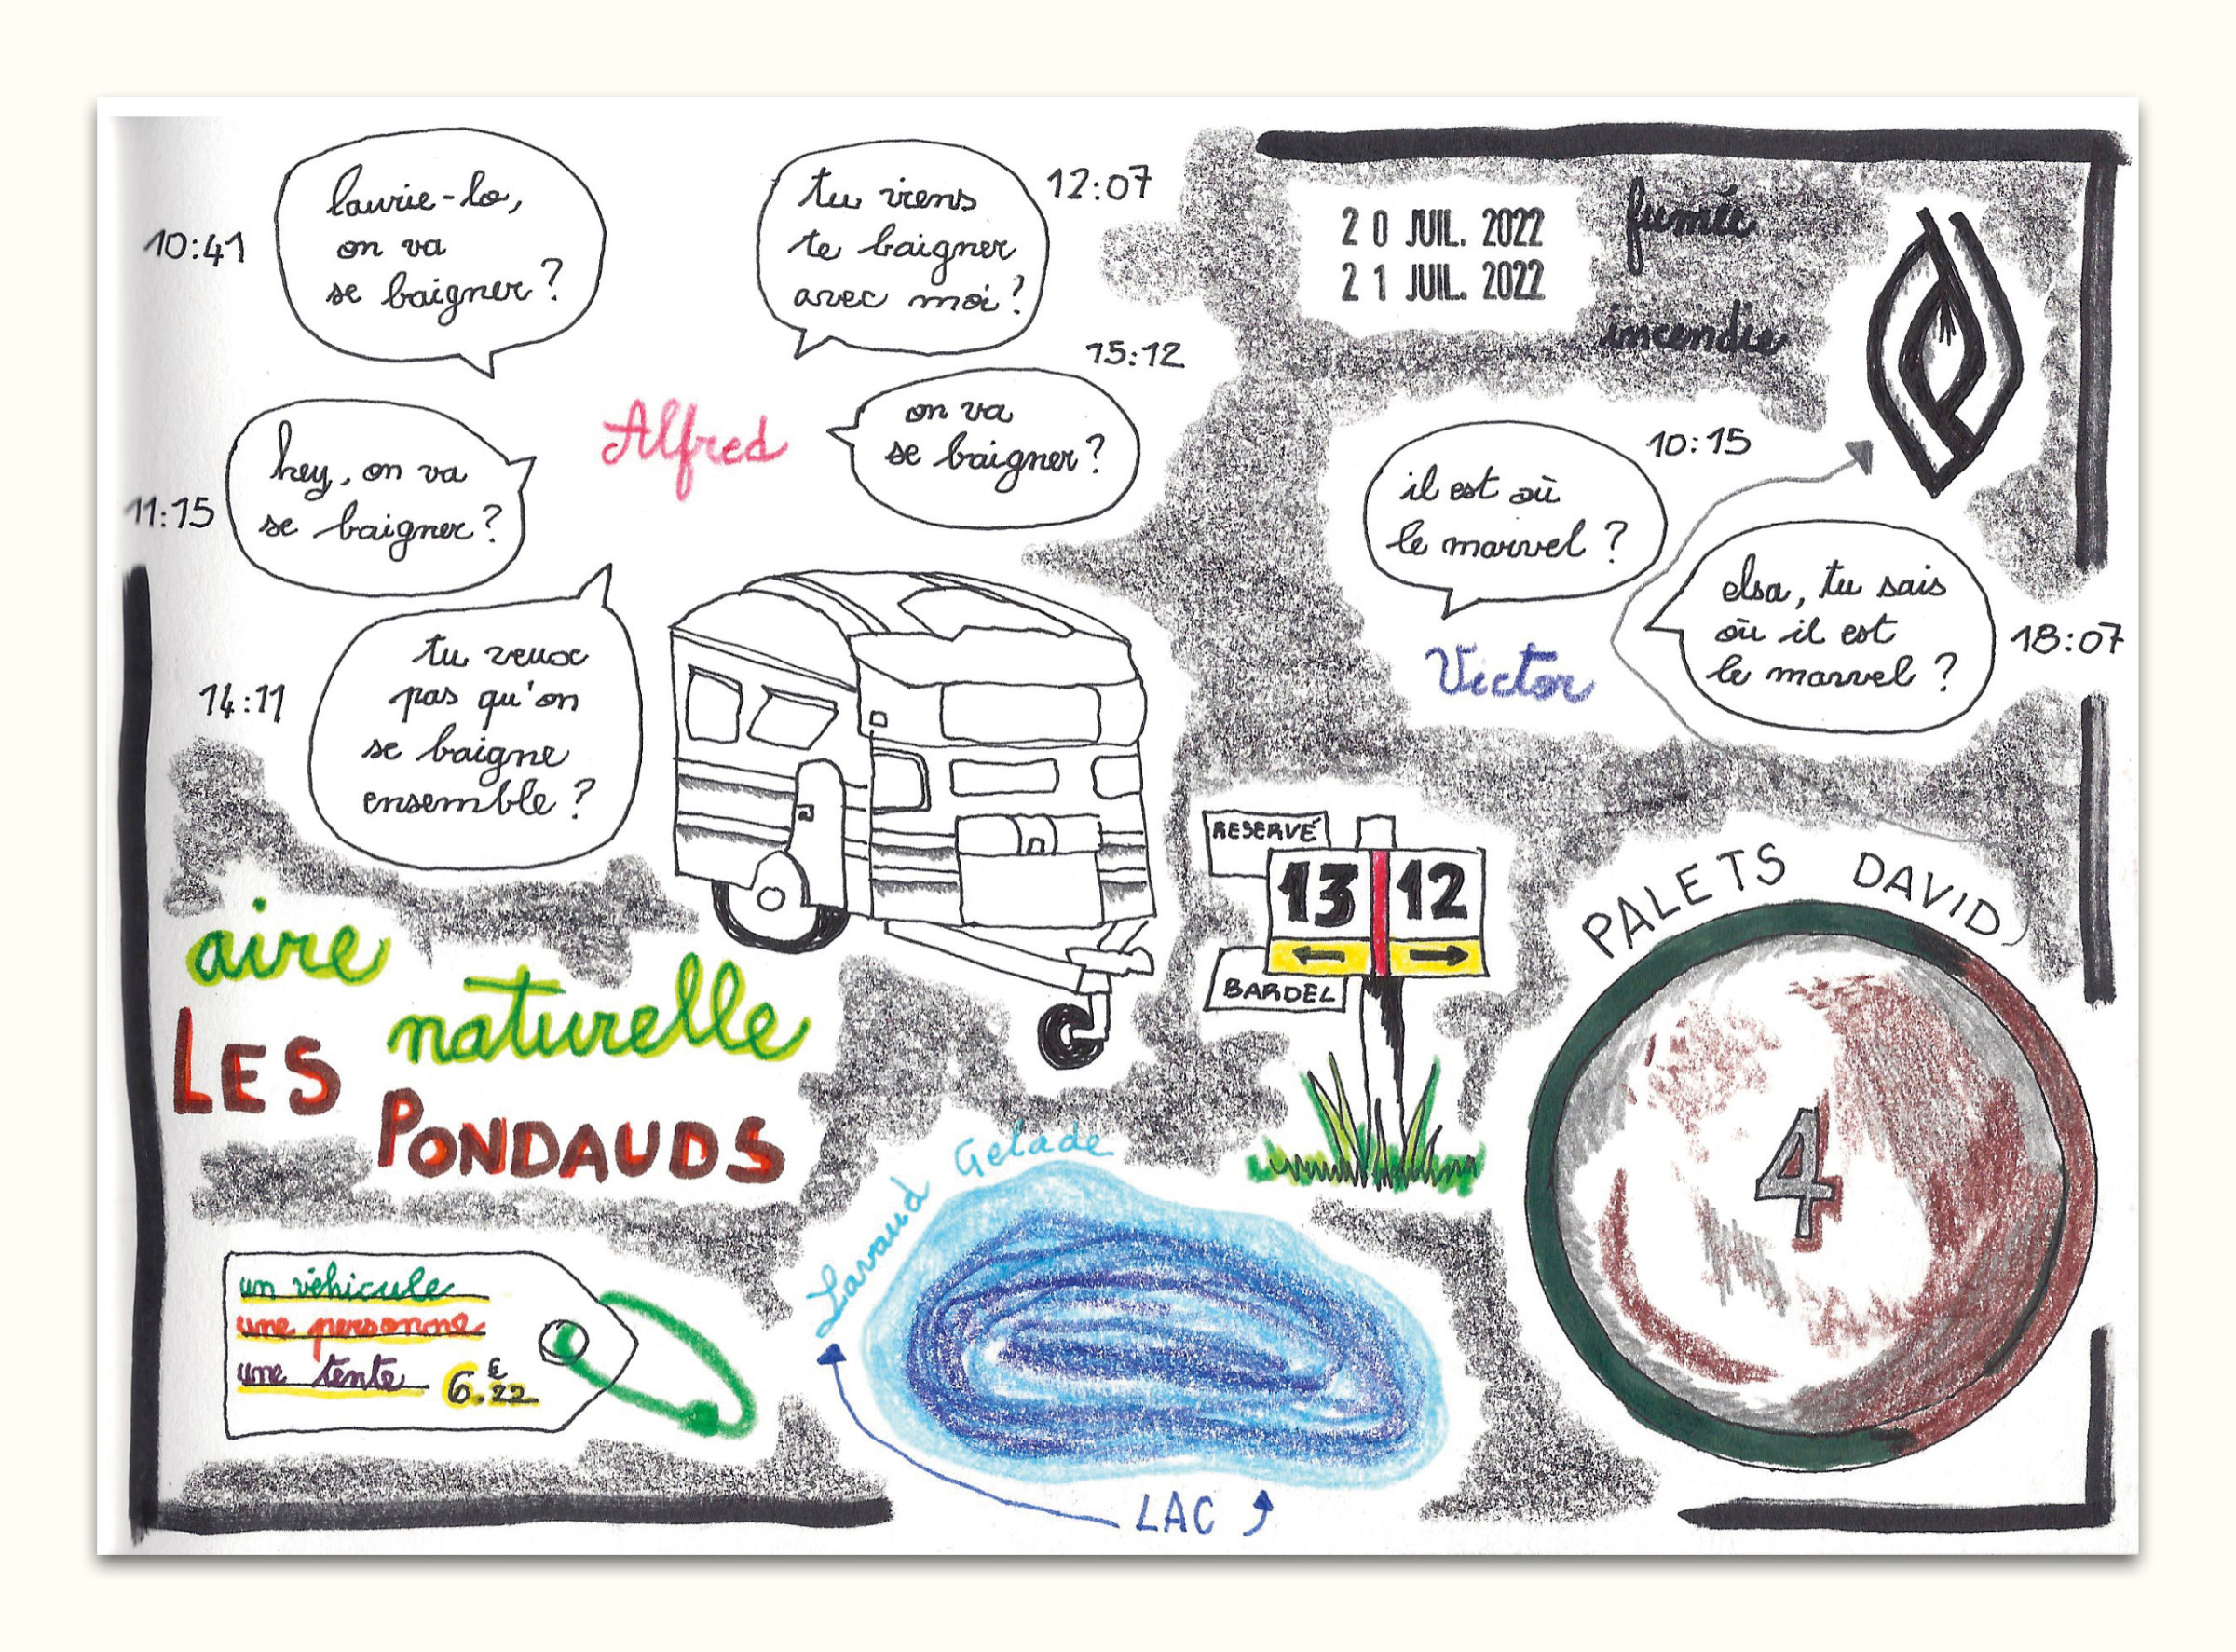 10:41
laurie-lo,
on va
se baigner ?
tu viens
te baigner
avec moi ?
12:07
20 JUIL. 2022
21 JUIL. 2022
fumée
incendie
15:12
Alfred
on va
se baigner ?
11:15
hey, on va
se baigner ?
14:11
tu veux
pas qu'on
se baigne
ensemble ?
10:15
il est où
le marvel ?
Victor
elsa, tu sais
où il est
le marvel ?
18:07
RESERVÉ
13 12
BARDEL
PALETS DAVID
4
aire
naturelle
LES
PONDAUDS
un véhicule
une personne
une tente 6.€22
Lavaud Gelade
LAC